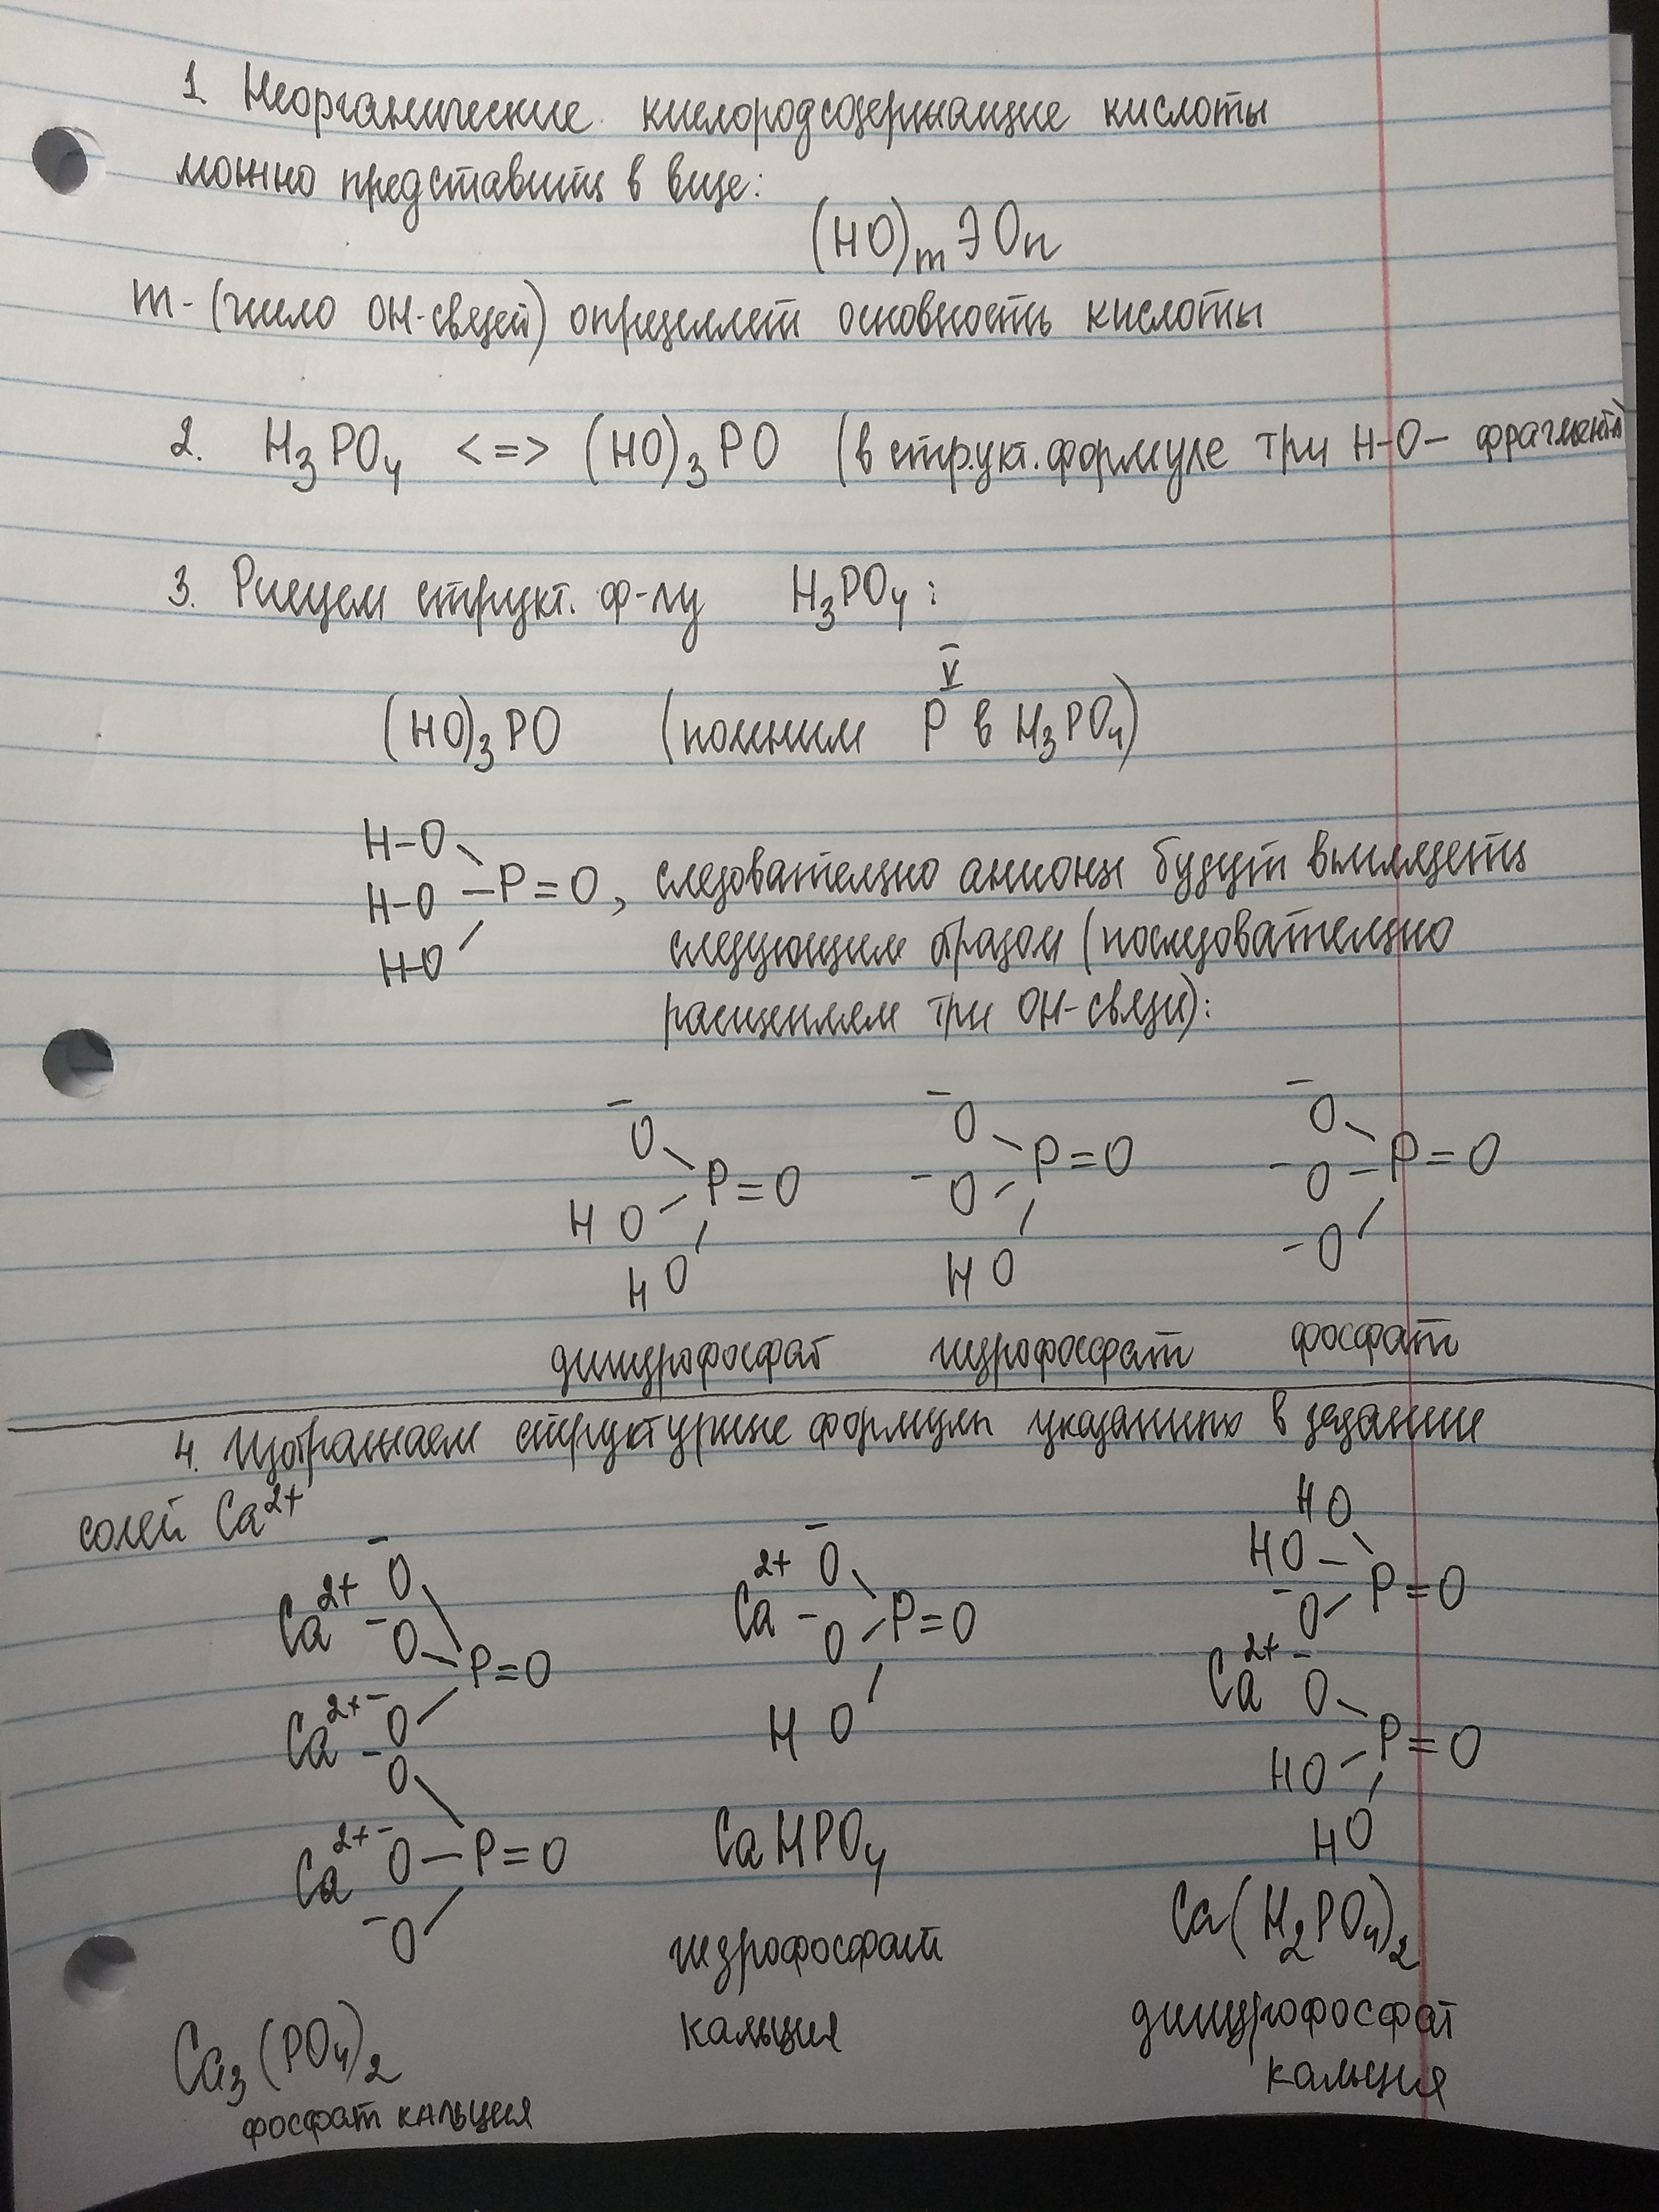 1. Неорганические кислородсодержащие кислоты
можно представить в виде:
(HO)mЭOn
m - (число OH-связей) определяет основность кислоты
2. H3PO4 <=> (HO)3PO (в структ. формуле три H-O- фрагмента)
3. Рисуем структ. ф-лу H3PO4:
V
(HO)3PO (помним P в H3PO4)
H-O
H-O -P=O, следовательно анионы будут выглядеть
H-O
следующим образом (последовательно
расщепляем три OH-связи):
-O -O -O
HO P=O -O P=O -O-P=O
HO HO -O
дигидрофосфат гидрофосфат фосфат
4. Изображаем структурные формулы указанных в задании
солей Ca2+
HO
HO-
Ca2+ -O Ca2+ -O P=O
-O P=O -O P=O -O
Ca2+ -O HO Ca2+ -O P=O
-O HO
Ca2+ -O-P=O HO
-O
CaHPO4
Ca(H2PO4)2
гидрофосфат
кальция
дигидрофосфат
кальция
Ca3(PO4)2
фосфат кальция